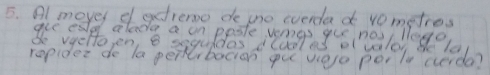 5. Al mover el extremo de una cuerda de 40 metros
que está atada a un poste vemos que nos llega
de vuelta en 8 segundos ¿cuál es el valor de la
rapidez de la perturbación que viaja por la cuerda?